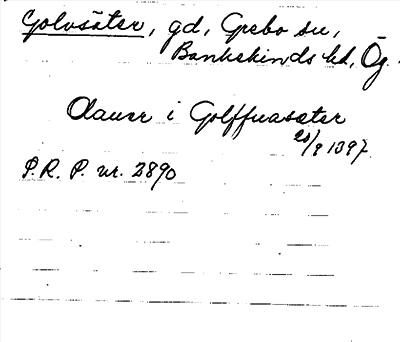 Golvsäter, gd, Grebo sn,
Bankekinds hd, Ög.
Olauer i Golffuasæter
20/8 1397.
P.R.P. nr. 2890